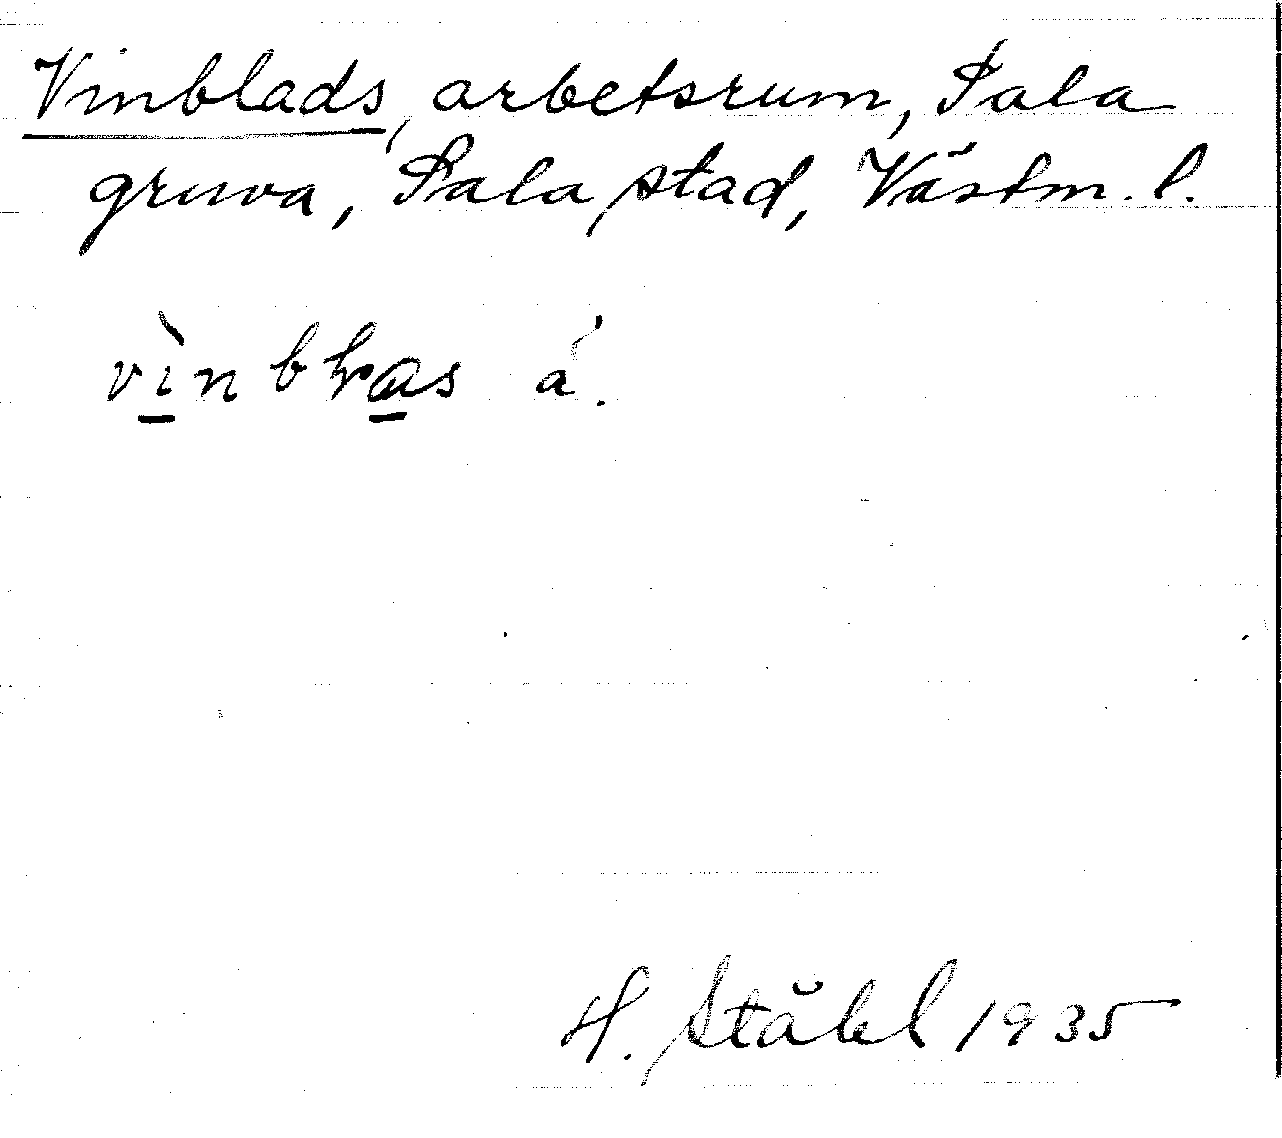 Vinblads, arbetsrum, Sala
gruva, Sala stad, Västm. l.
H. Ståhl 1935